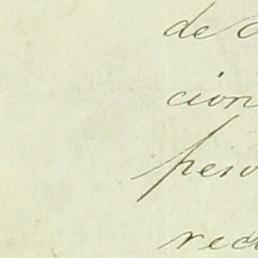 de
cion
pers
rec